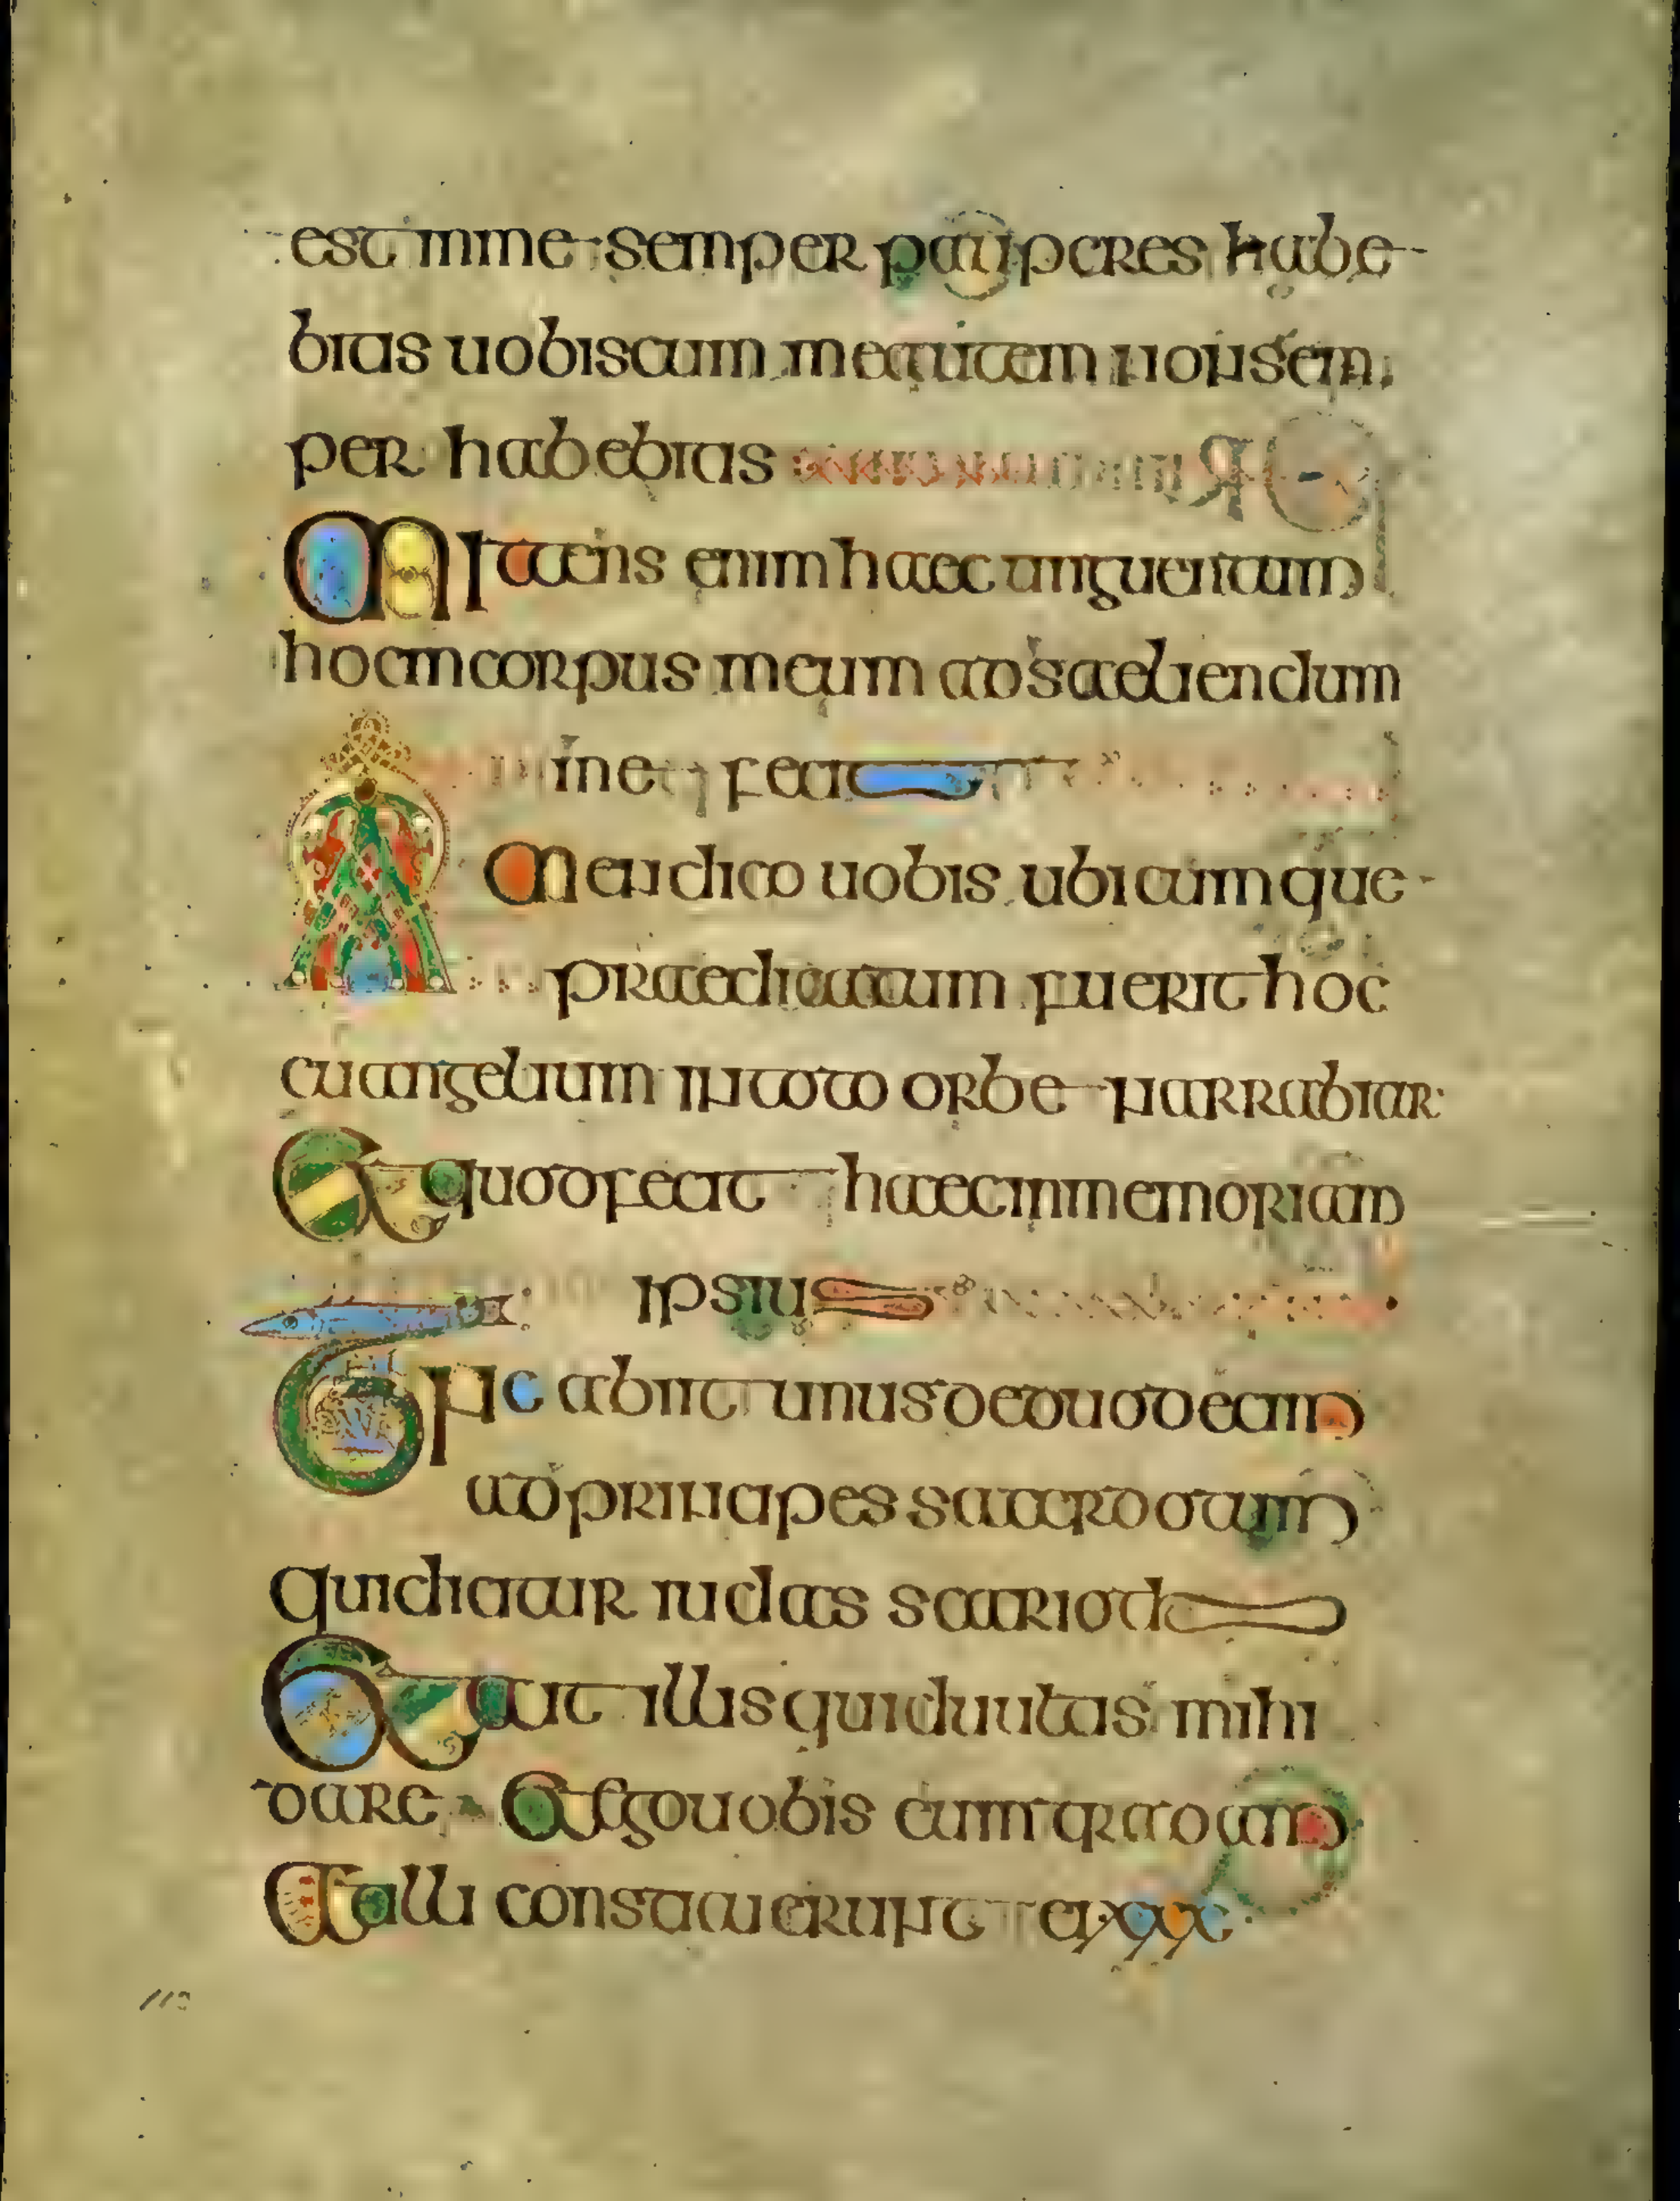 est in me semper pauperes habe
bitis uobiscum me autem non sem
per habebitis
Mittens enim haec unguentum
hoc in corpus meum ad saeliendum
me fecit
Amen dico uobis ubicumque
praedicatum fuerit hoc
euangelium in toto orbe narrabitur
Et quod fecit haec in memoriam
ipsius
Tunc abiit unus de duodecim
ad principes sacerdotum
qui dicitur iudas scarioth
Et ait illis quid uultis mihi
dare Et ego uobis eum tradam
At illi constituerunt ei xxx